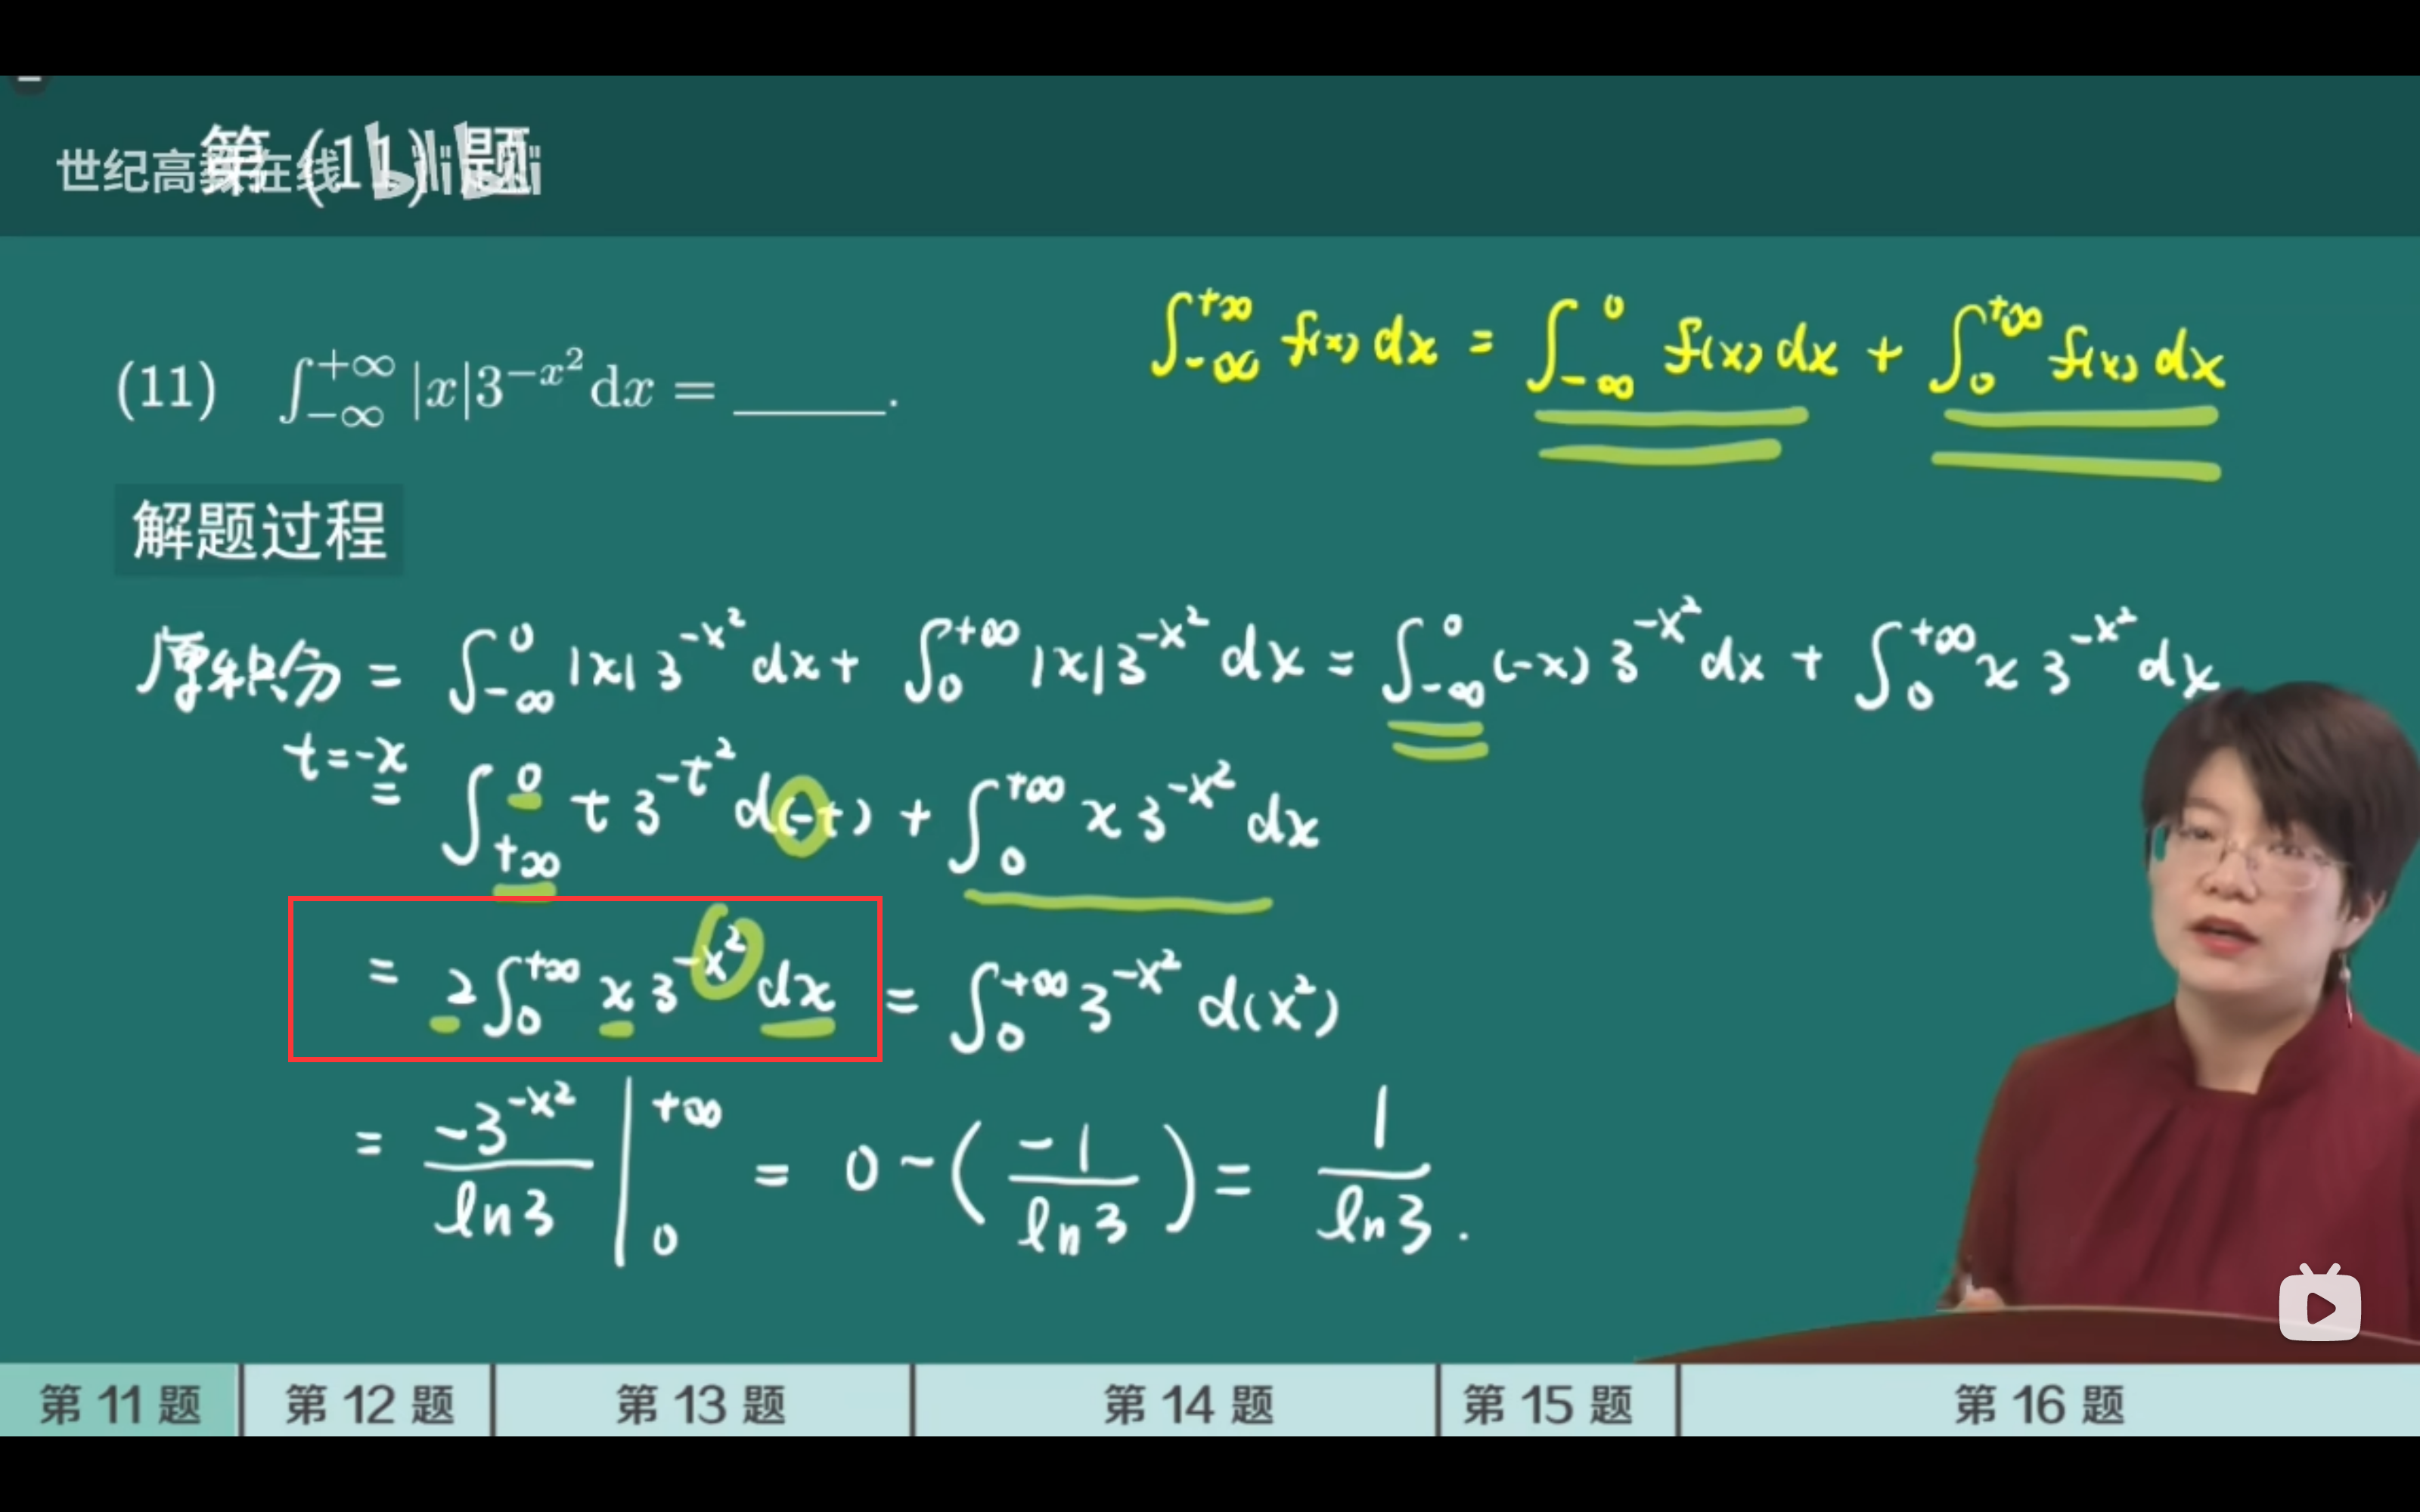 世纪高教在线 bilibili
第 (11) 题
(11) ∫_{-∞}^{+∞} |x|3^{-x²}dx = ______.
∫_{-∞}^{+∞} f(x) dx = ∫_{-∞}^{0} f(x) dx + ∫_{0}^{+∞} f(x) dx
解题过程
原积分 = ∫_{-∞}^{0} |x| 3^{-x²} dx + ∫_{0}^{+∞} |x| 3^{-x²} dx = ∫_{-∞}^{0} (-x) 3^{-x²} dx + ∫_{0}^{+∞} x 3^{-x²} dx
t=-x
= ∫_{+∞}^{0} t 3^{-t²} d(-t) + ∫_{0}^{+∞} x 3^{-x²} dx
= 2∫_{0}^{+∞} x 3^{-x²} dx = ∫_{0}^{+∞} 3^{-x²} d(x²)
= \frac{-3^{-x²}}{ln3} |_{0}^{+∞} = 0 - (\frac{-1}{ln3}) = \frac{1}{ln3}.
第 11 题 第 12 题 第 13 题 第 14 题 第 15 题 第 16 题